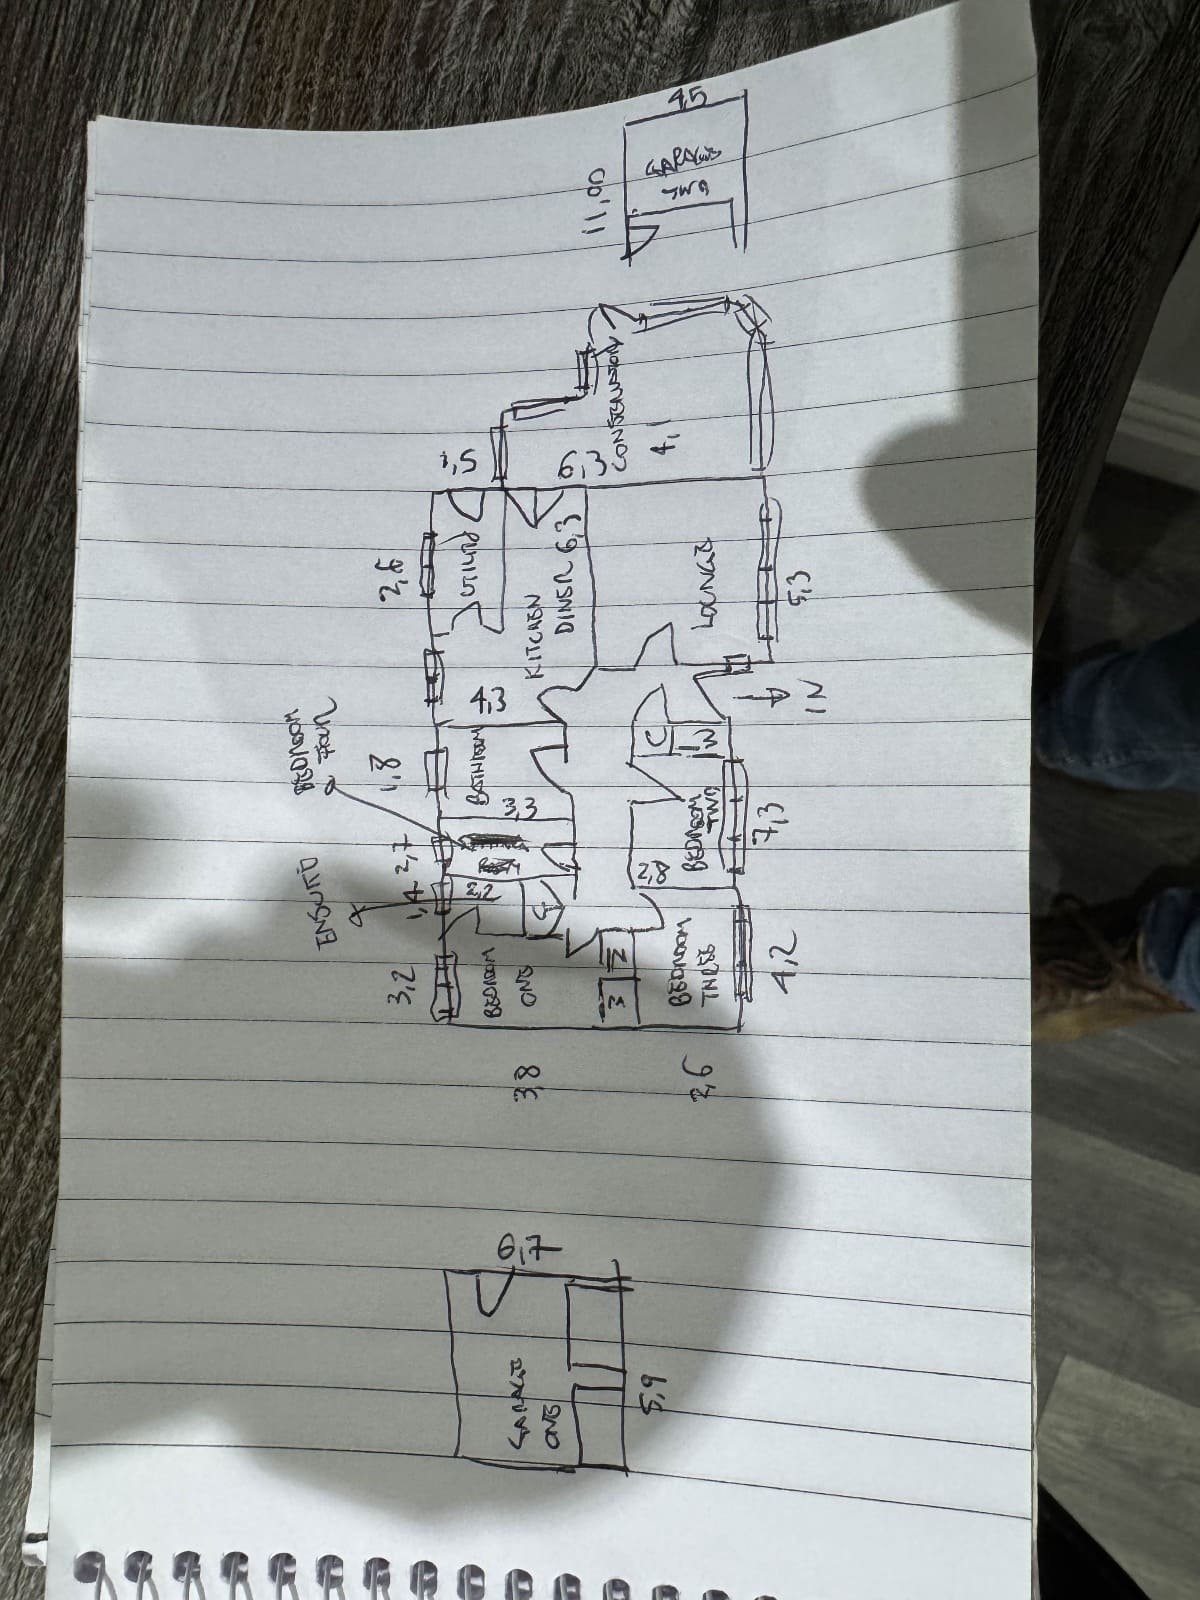 4,5
GARAGE
TWO
11,00
CONSERVATORY
4,1
6,3
1,5
2,8
UTILITY
KITCHEN
DINER 6,3
4,3
LOUNGE
5,3
IN
BEDROOM
FOUR
1,8
BATHROOM
3,3
C
W
BEDROOM
TWO
7,3
2,8
2,7
ENSUITE
1,4
2,2
C
3,2
BEDROOM
ONE
W
W
BEDROOM
THREE
4,2
3,8
2,6
6,7
GARAGE
ONE
5,9